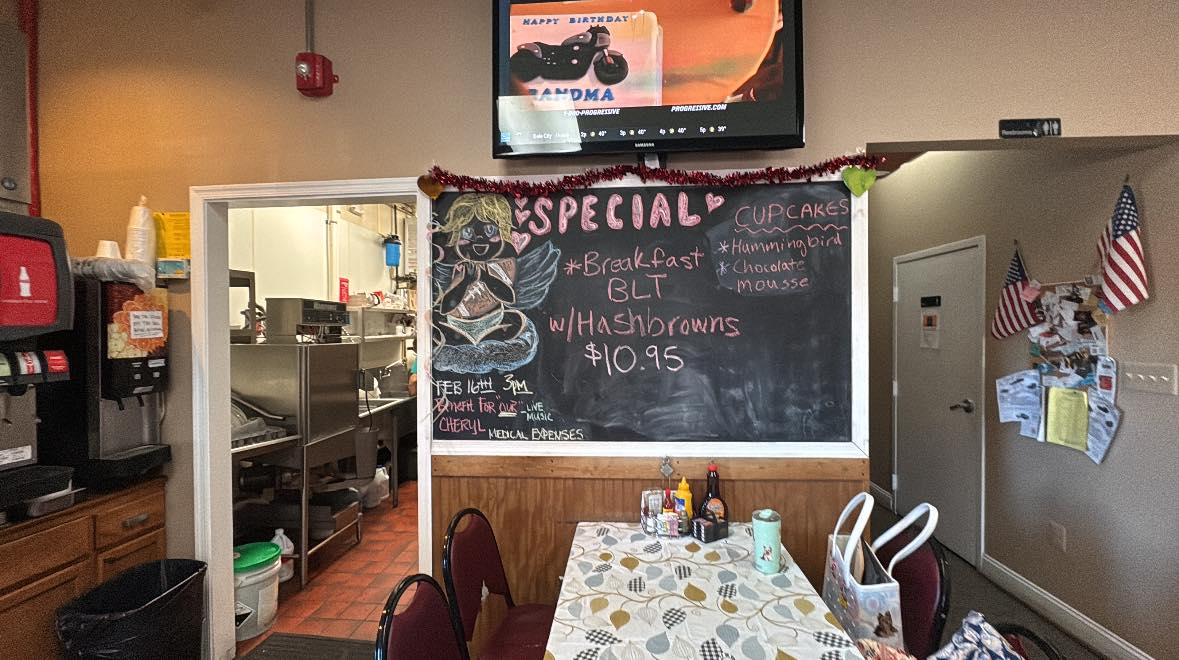 HAPPY BIRTHDAY
RANDMA
1-800-PROGRESSIVE
PROGRESSIVE.COM
2p 40° 3p 40° 4p 40° 5p 39°
SAMSUNG
Restrooms
SPECIAL
*Breakfast
BLT
w/Hashbrowns
$10.95
CUPCAKES
*Hummingbird
*Chocolate
mousse
FEB 16TH 3PM
Benefit For "our" -LIVE
MUSIC
CHERYL MEDICAL EXPENSES